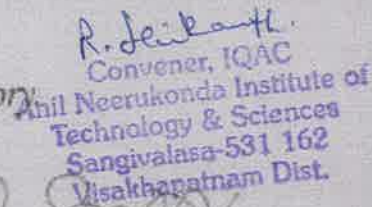 Convener, IQAC
Anil Neerukonda Institute of
Technology & Sciences
Sangivalasa-531 162
Visakhapatnam Dist.